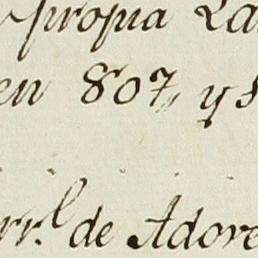 propia La
en 807, y s
rr.l de Adore